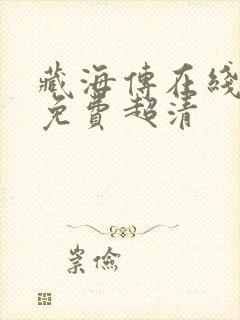 藏海傳在綫
免費超清
崇儉